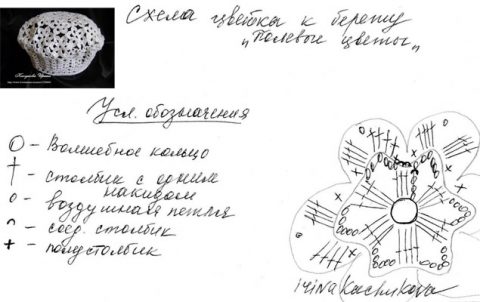 Схема цветка к берету
"Полевые цветы"
Усл. обозначения
О - Волшебное кольцо
† - столбик с одним
накидом
о - воздушная петля
- соед. столбик
+ - полустолбик
Irina Kachukova